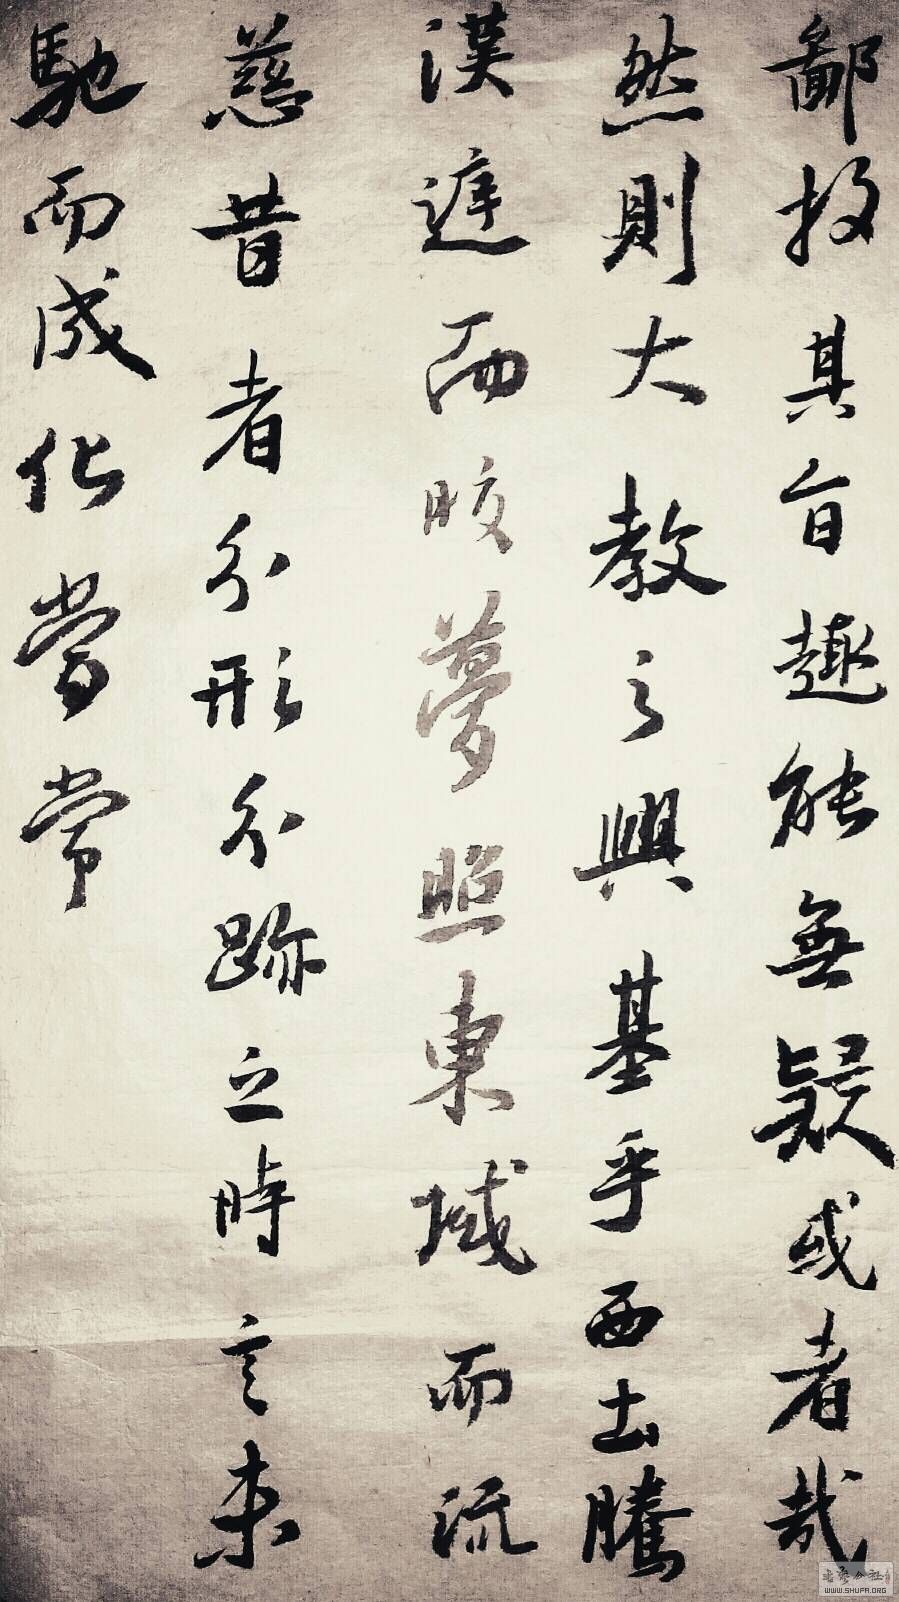 鄙投其旨趣能無疑或者哉
然則大教之興基乎西土騰
漢遅而皎夢照東域而流
慈昔者分形分跡之時言未
馳而成化當常
WWW.SHUFA.ORG